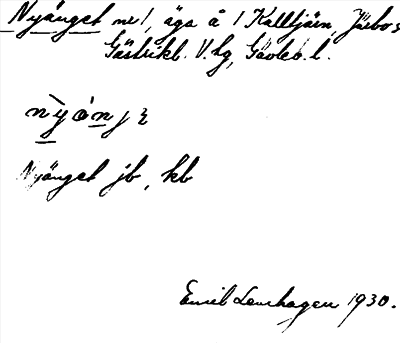 Nyänget nr 1, äga å 1 Kalltjärn, Järbo s
Gästrikl. V. hg, Gävleb. l.
Nyänget jb, kb
Emil Lenhagen 1930.